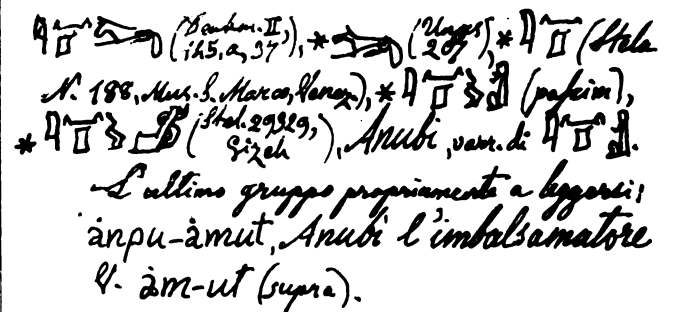 (Denkm. II, 145, a, 37), * (Unas 207), * (Stela
N. 188, Mus. S. Marco, Venez.), * (passim),
* (Stel. 29329, Gizeh), Anubi, varr. di .
L'ultimo gruppo propriamente a leggersi:
ȧnpu-ȧmut, Anubi l'imbalsamatore
V. ȧm-ut (supra).